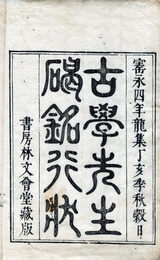 寳永四年龍集丁亥季秋穀日
古學先生
碣銘行狀
書房林文會堂藏版